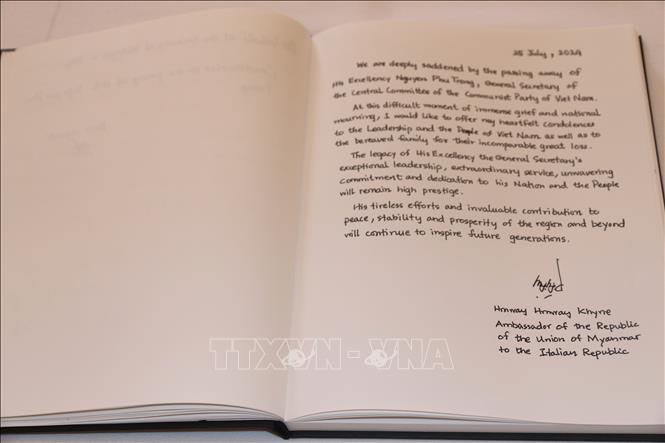 25 July, 2024
We are deeply saddened by the passing away of
His Excellency Nguyen Phu Trong, General Secretary of
the Central Committee of the Communist Party of Viet Nam.
At this difficult moment of immense grief and national
mourning, I would like to offer my heartfelt condolences
to the Leadership and the People of Viet Nam as well as to
the bereaved family for their incomparable great loss.
The legacy of His Excellency the General Secretary's
exceptional leadership, extraordinary service, unwavering
commitment and dedication to his Nation and the People
will remain high prestige.
His tireless efforts and invaluable contribution to
peace, stability and prosperity of the region and beyond
will continue to inspire future generations.
Hmway Hmway Khyne
Ambassador of the Republic
of the Union of Myanmar
to the Italian Republic
TTXVN - VNA